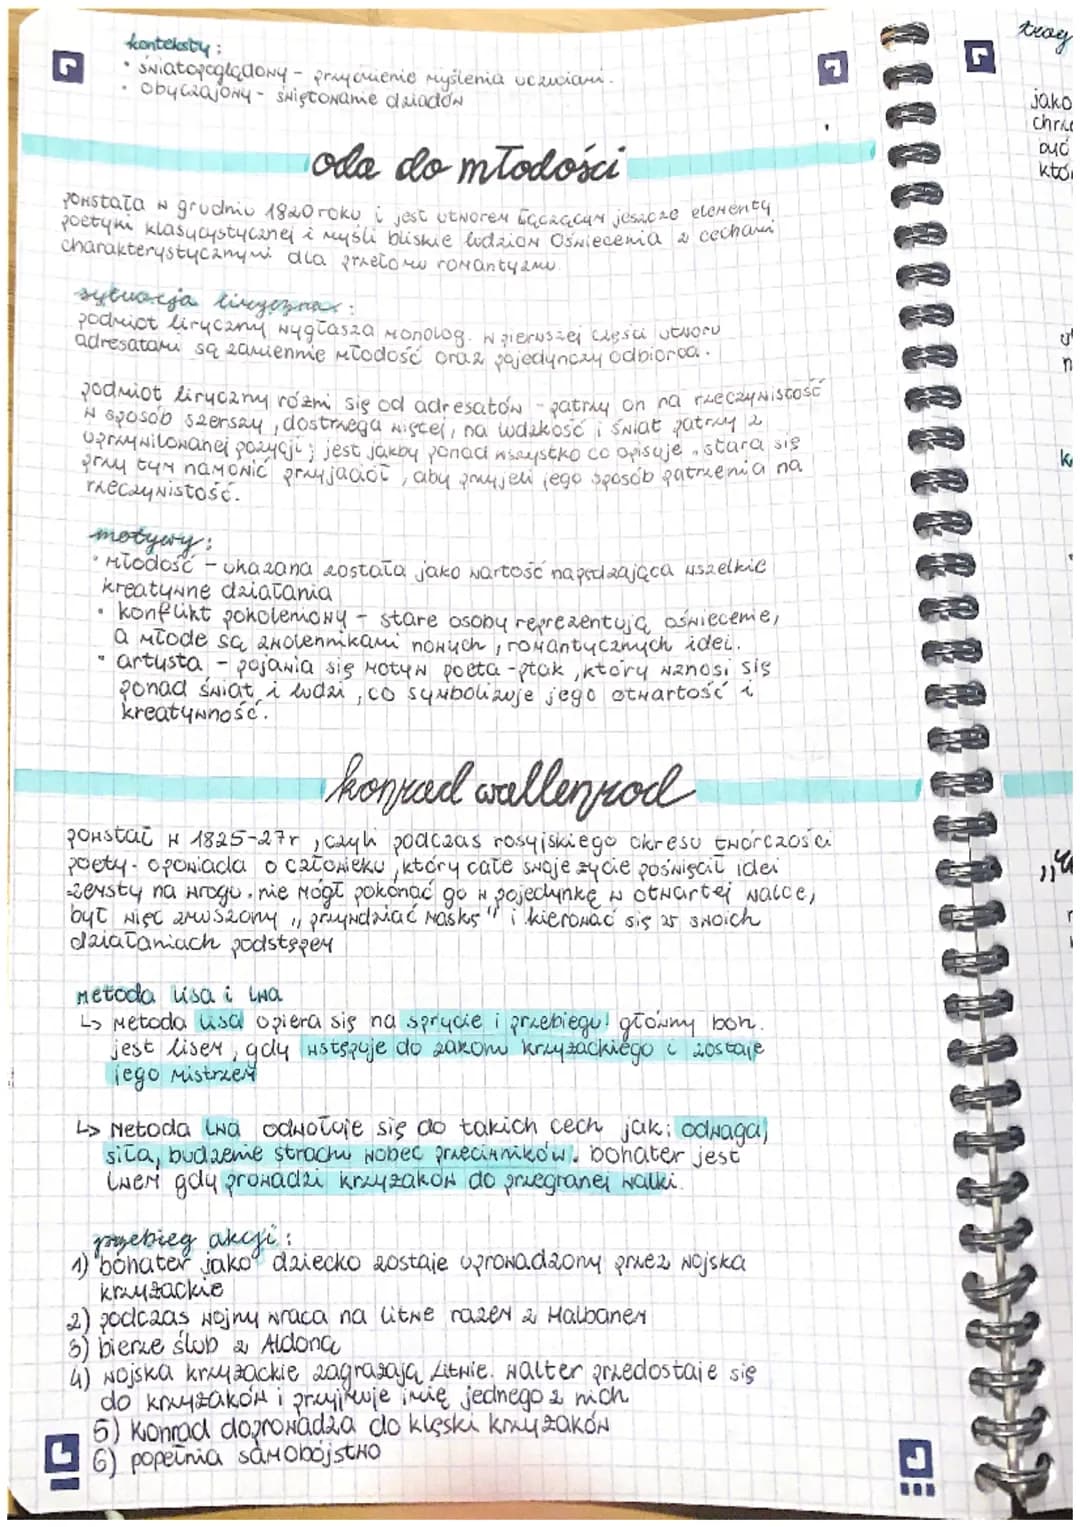 konteksty:
• światopoglądowy - przyćmienie myślenia uczuciami.
• obyczajowy - świętowanie dziadów
oda do młodości
powstała w grudniu 1820 roku i jest utworem łączącym jeszcze elementy
poetyki klasycystycznej i myśli bliskie ludziom Oświecenia z cechami
charakterystycznymi dla przełomu romantyzmu.
sytuacja liryczna:
podmiot liryczny wygłasza monolog. w pierwszej części utworu
adresatami są zamiennie młodość oraz pojedynczy odbiorca.
podmiot liryczny różni się od adresatów - patrzy on na rzeczywistość
w sposób szerszy, dostrzega więcej, na ludzkość i świat patrzy z
uprzywilowanej pozycji; jest jakby ponad wszystko co opisuje. stara się
przy tym namówić przyjaciół, aby przyjeli jego sposób patrzenia na
rzeczywistość.
motywy:
• młodość - ukazana została jako wartość napędzająca wszelkie
kreatywne działania
• konflikt pokoleniowy - stare osoby reprezentują oświecenie,
a młode są zwolennikami nowych, romantycznych idei.
• artysta - pojawia się motyw poeta-ptak, który wznosi się
ponad świat i ludzi, co symbolizuje jego otwartość i
kreatywność.
konrad wallenrod
powstał w 1825-27r, czyli podczas rosyjskiego okresu twórczości
poety. opowiada o człowieku, który całe swoje życie poświęcił idei
zemsty na wrogu. nie mógł pokonać go w pojedynkę w otwartej walce,
był więc zmuszony „przywdziać maskę" i kierować się w swoich
działaniach podstępem
metoda lisa i lwa
↳ metoda lisa opiera się na sprycie i przebiegu! główny boh.
jest lisem, gdy wstępuje do zakonu krzyżackiego i zostaje
jego mistrzem
↳ metoda lwa odwołuje się do takich cech jak: odwaga,
siła, budzenie strachu wobec przeciwników. bohater jest
lwem gdy prowadzi krzyżaków do przegranej walki.
przebieg akcji:
1) bohater jako dziecko zostaje uprowadzony przez wojska
krzyżackie
2) podczas wojny wraca na litwe razem z Halbanem
3) bierze ślub z Aldoną
4) wojska krzyżackie zagrażają Litwie. Walter przedostaje się
do krzyżaków i przyjmuje imię jednego z nich
5) Konrad doprowadza do klęski krzyżaków
6) popełnia samobójstwo
jako